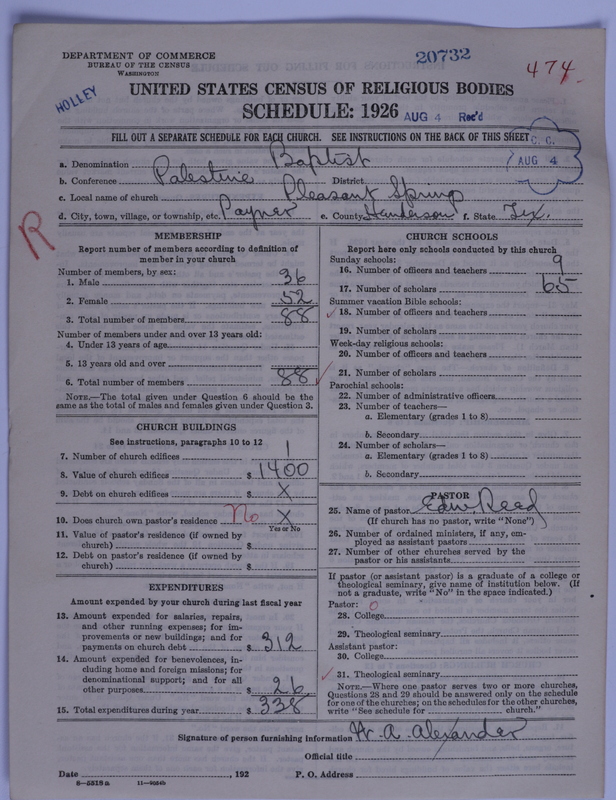 DEPARTMENT OF COMMERCE
BUREAU OF THE CENSUS
WASHINGTON
20732
474
HOLLEY
UNITED STATES CENSUS OF RELIGIOUS BODIES
SCHEDULE: 1926
AUG 4 Rec'd
FILL OUT A SEPARATE SCHEDULE FOR EACH CHURCH. SEE INSTRUCTIONS ON THE BACK OF THIS SHEET
C. C.
AUG 4
a. Denomination Baptist
b. Conference Palestine District
c. Local name of church Pleasant Spring
d. City, town, village, or township, etc. Payner e. County Handerson f. State Tex.
R
MEMBERSHIP
Report number of members according to definition of
member in your church
Number of members, by sex:
1. Male 36
2. Female 52
3. Total number of members 88
Number of members under and over 13 years old:
4. Under 13 years of age
5. 13 years old and over
6. Total number of members 88
NOTE.—The total given under Question 6 should be the
same as the total of males and females given under Question 3.
CHURCH BUILDINGS
See instructions, paragraphs 10 to 12
7. Number of church edifices 1
8. Value of church edifices $ 1400
9. Debt on church edifices $ X
10. Does church own pastor's residence No X
Yes or No
11. Value of pastor's residence (if owned by
church) $
12. Debt on pastor's residence (if owned by
church) $
EXPENDITURES
Amount expended by your church during last fiscal year
13. Amount expended for salaries, repairs,
and other running expenses; for im-
provements or new buildings; and for
payments on church debt $ 312
14. Amount expended for benevolences, in-
cluding home and foreign missions; for
denominational support; and for all
other purposes $ 26
15. Total expenditures during year $ 338
CHURCH SCHOOLS
Report here only schools conducted by this church
Sunday schools:
16. Number of officers and teachers 9
17. Number of scholars 65
Summer vacation Bible schools:
18. Number of officers and teachers
19. Number of scholars
Week-day religious schools:
20. Number of officers and teachers
21. Number of scholars
Parochial schools:
22. Number of administrative officers
23. Number of teachers—
a. Elementary (grades 1 to 8)
b. Secondary
24. Number of scholars—
a. Elementary (grades 1 to 8)
b. Secondary
PASTOR
25. Name of pastor Edw. Reed
(If church has no pastor, write "None")
26. Number of ordained ministers, if any, em-
ployed as assistant pastors
27. Number of other churches served by the
pastor or his assistants
If pastor (or assistant pastor) is a graduate of a college or
theological seminary, give name of institution below. (If
not a graduate, write "No" in the space indicated.)
Pastor: 0
28. College
29. Theological seminary
Assistant pastor:
30. College
31. Theological seminary
NOTE.—Where one pastor serves two or more churches,
Questions 28 and 29 should be answered only on the schedule
for one of the churches; on the schedules for the other churches,
write "See schedule for church."
Signature of person furnishing information W. A. Alexander
Official title
Date , 192 P. O. Address
8—5518a 11—9054b